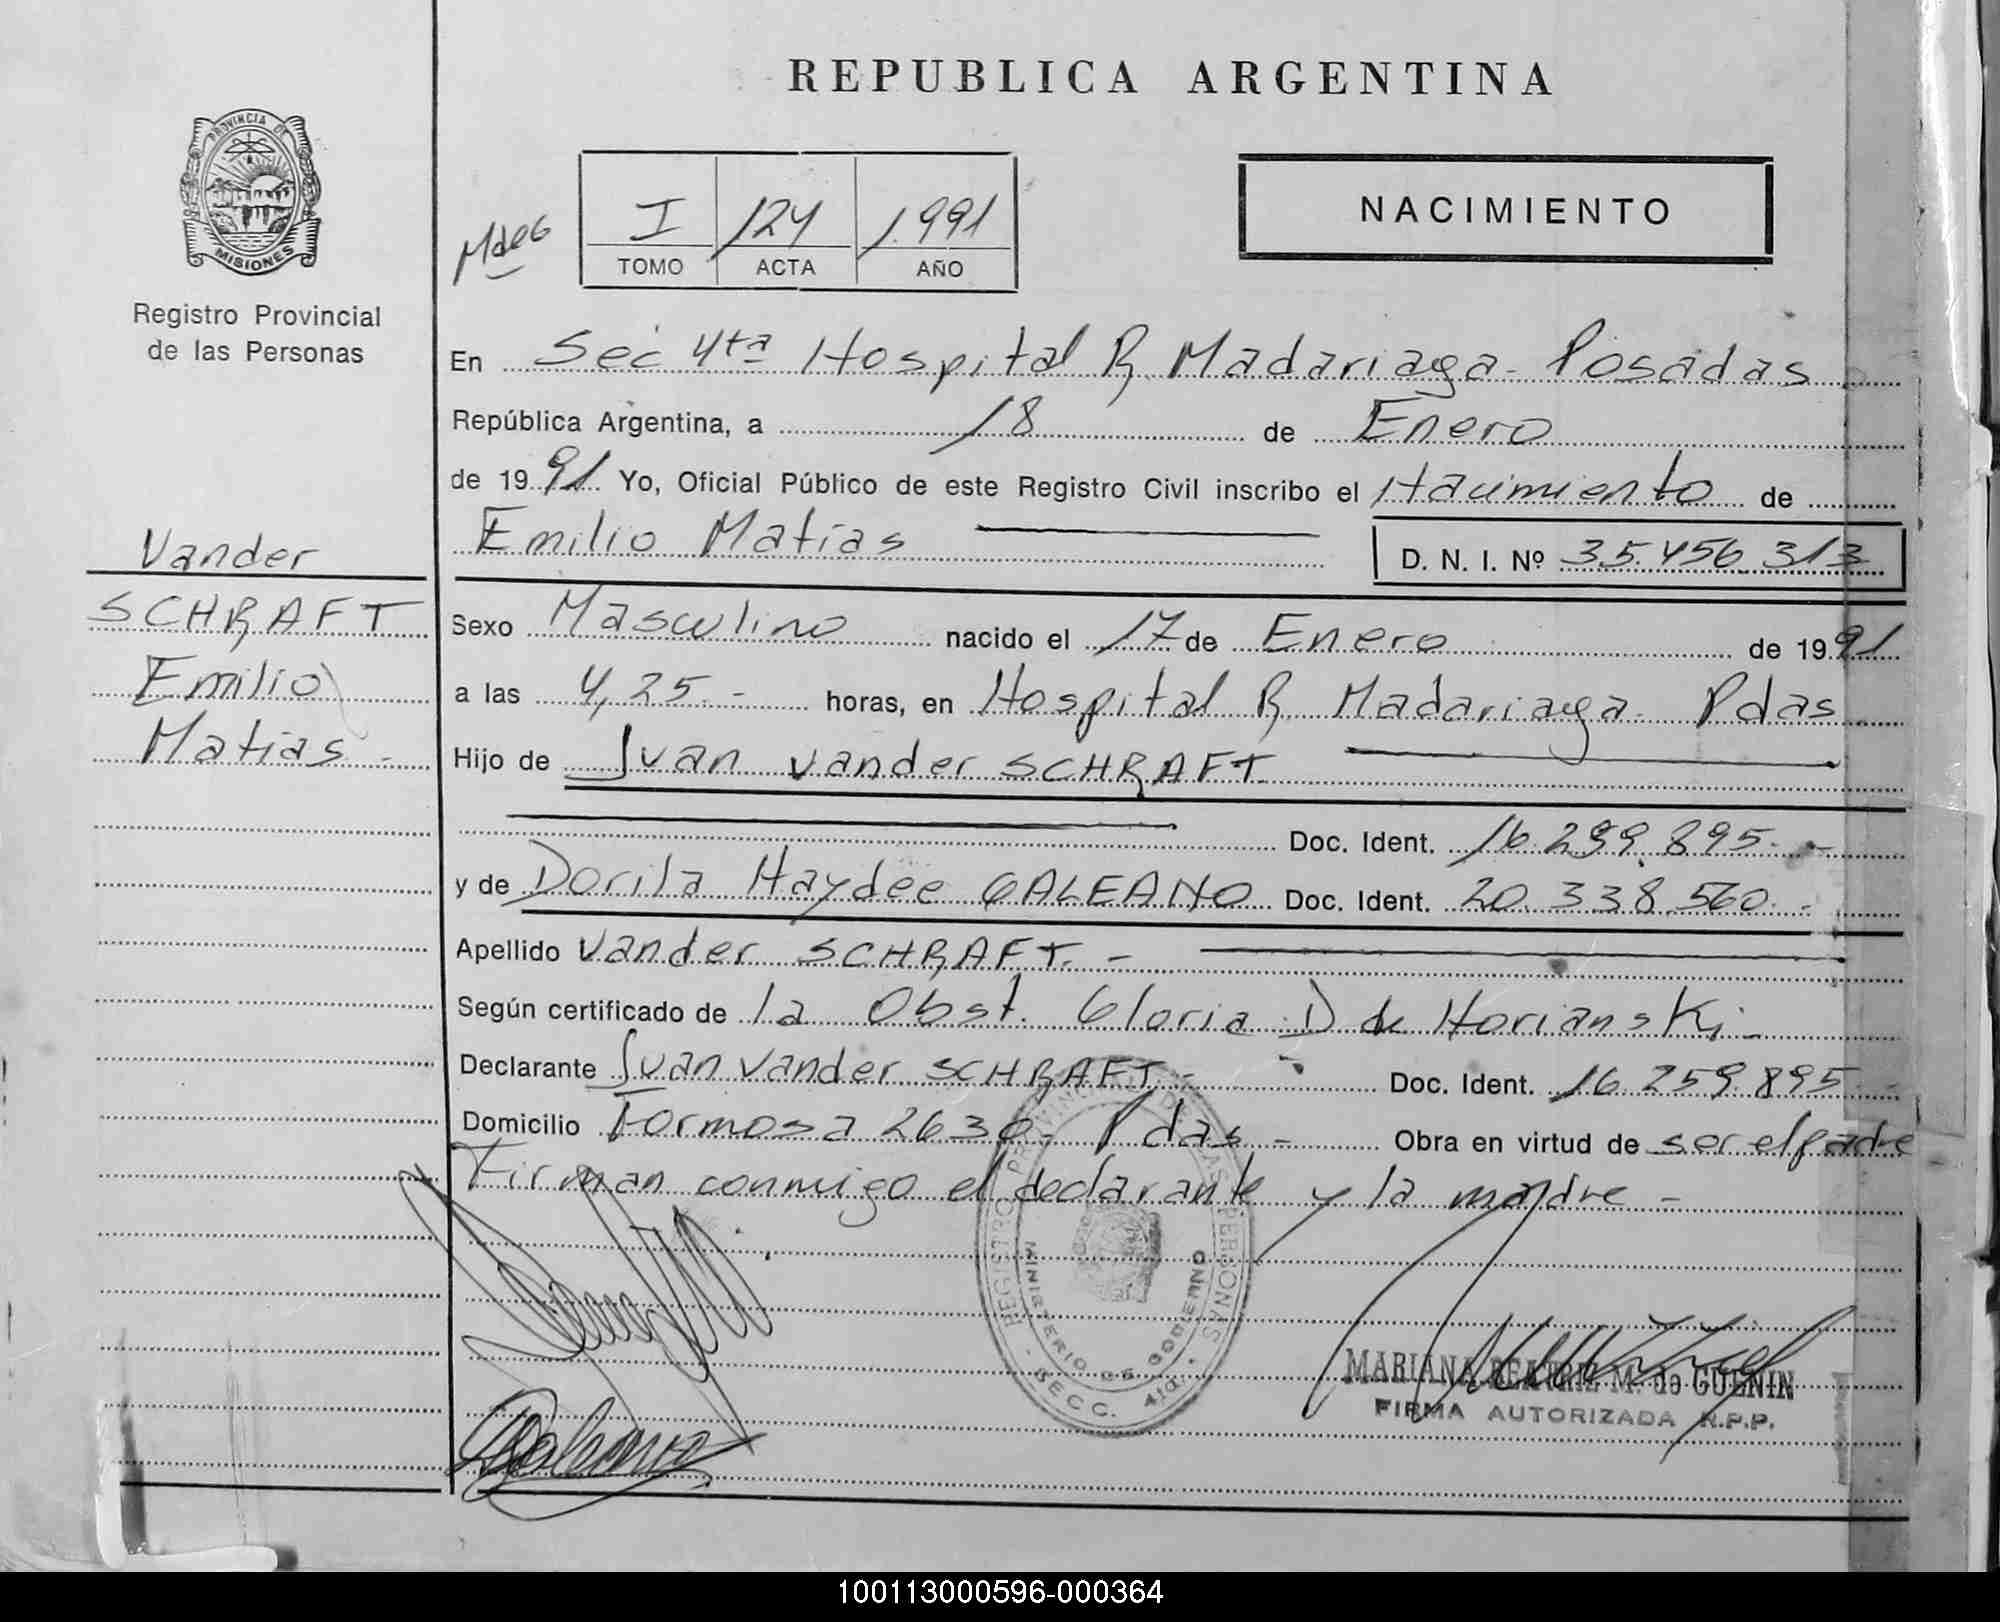 REPUBLICA ARGENTINA
PROVINCIA DE
MISIONES
Registro Provincial
de las Personas
I 124 1.991
TOMO ACTA AÑO
NACIMIENTO
En Sec 4ta Hospital R. Madariaga - Posadas
República Argentina, a 18 de Enero
de 1991 Yo, Oficial Público de este Registro Civil inscribo el Nacimiento de
Emilio Matias
D. N. I. Nº 35.456.313
Vander
SCHRAFT
Emilio
Matias -
Sexo Masculino nacido el 17 de Enero de 1991
a las 4,25.- horas, en Hospital R. Madariaga - Pdas
Hijo de Juan Vander SCHRAFT
Doc. Ident. 16.299.895.-
y de Dorila Haydee GALEANO Doc. Ident. 20.338.560.-
Apellido Vander SCHRAFT. -
Según certificado de la Obst. Gloria D de Horianski -
Declarante Juan Vander SCHRAFT - Doc. Ident. 16.259.895 -
Domicilio Formosa 2630 - Pdas - Obra en virtud de ser el padre
Firman conmigo el declarante y la madre -
REGISTRO PROVINCIAL DE LAS PERSONAS
MINISTERIO DE GOBIERNO
- SECC. 4ta. -
MARIANA BEATRIZ M. de GUENIN
FIRMA AUTORIZADA R.P.P.
100113000596-000364